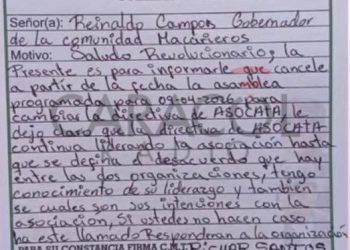 Señor(a): Reinaldo Campos Gobernador
de la comunidad Macañeros
Motivo: Saludo Revolucionario, la
Presente es para informarle que cancele
a partir de la fecha la asamblea
programada para 09-04-2026 para
cambiar la directiva de ASOCATA, le
dejo claro que la directiva de ASOCATA
continua liderando la asociación hasta
que se defina el desacuerdo que hay
entre las dos organizaciones, tengo
conocimiento de su liderazgo y tambien
se cuales son sus intenciones con la
asociacion, Si ustedes no hacen caso
ha este llamado Responderan a la organización
PARA SU CONSTANCIA FIRMA